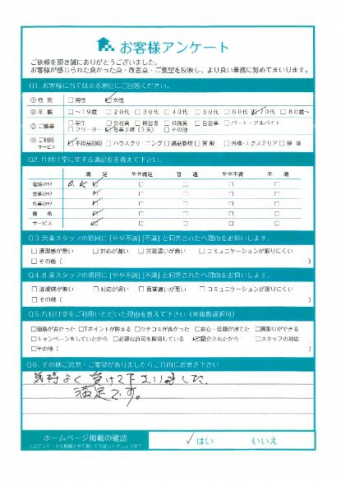 お客様アンケート
ご依頼を頂き誠にありがとうございました。
お客様が感じられた良かった点・改善点・ご要望を反映し、より良い業務に努めてまいります。
Q1. お客様に当てはまる項目にご回答ください。
①性 別 □男性 女性
②年 齢 □～19歳 □20代 □30代 □40代 □50代 □60代 70代 □80歳～
③ご職業 □学生 □会社員 □経営者 □公務員 □自営業 □パート・アルバイト
□フリーター 専業主婦（主夫） □その他
④ご利用サービス 不用品回収 □ハウスクリーニング □遺品整理 □買取 □外構・エクステリア □解体
Q2. 片付け堂に関する満足度を教えて下さい。
満 足 やや満足 普 通 やや不満 不 満
電話スタッフ
営業スタッフ
作業スタッフ
価 格
サービス
Q3. 営業スタッフの項目に [やや不満] [不満] と回答された方へ理由をお伺いします。
□清潔感が無い □対応が悪い □言葉遣いが悪い □コミュニケーションが取りにくい
□その他（ ）
Q4. 作業スタッフの項目に [やや不満] [不満] と回答された方へ理由をお伺いします。
□清潔感が無い □対応が悪い □言葉遣いが悪い □コミュニケーションが取りにくい
□その他（ ）
Q5. 片付け堂をご利用いただいた理由を教えて下さい（※複数選択可）
□価格が安かった □Tポイントが貯まる □クチコミが良かった □安心・信頼が持てた □買取りができる
□キャンペーンをしていたから □必要な許可を取得している 紹介されたから □スタッフの対応
□その他（ ）
Q6. その他ご意見・ご要望がありましたらご自由にお書き下さい
気持よく受けて下さいました。
満足です。
ホームページ掲載の確認
はい いいえ